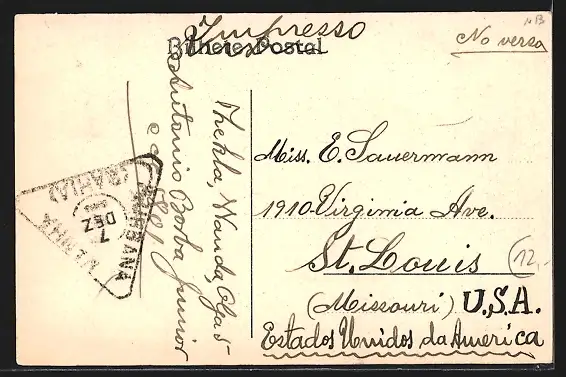 Impresso
Bilhete Postal
No verso
Miss. E. Sauermann
1910 Virginia Ave.
St. Louis
(Missouri) U.S.A.
Estados Unidos da America
12,-
Thekla, Wanda, Olga
Antonio Borba Junior
URBANA
7
DEZ